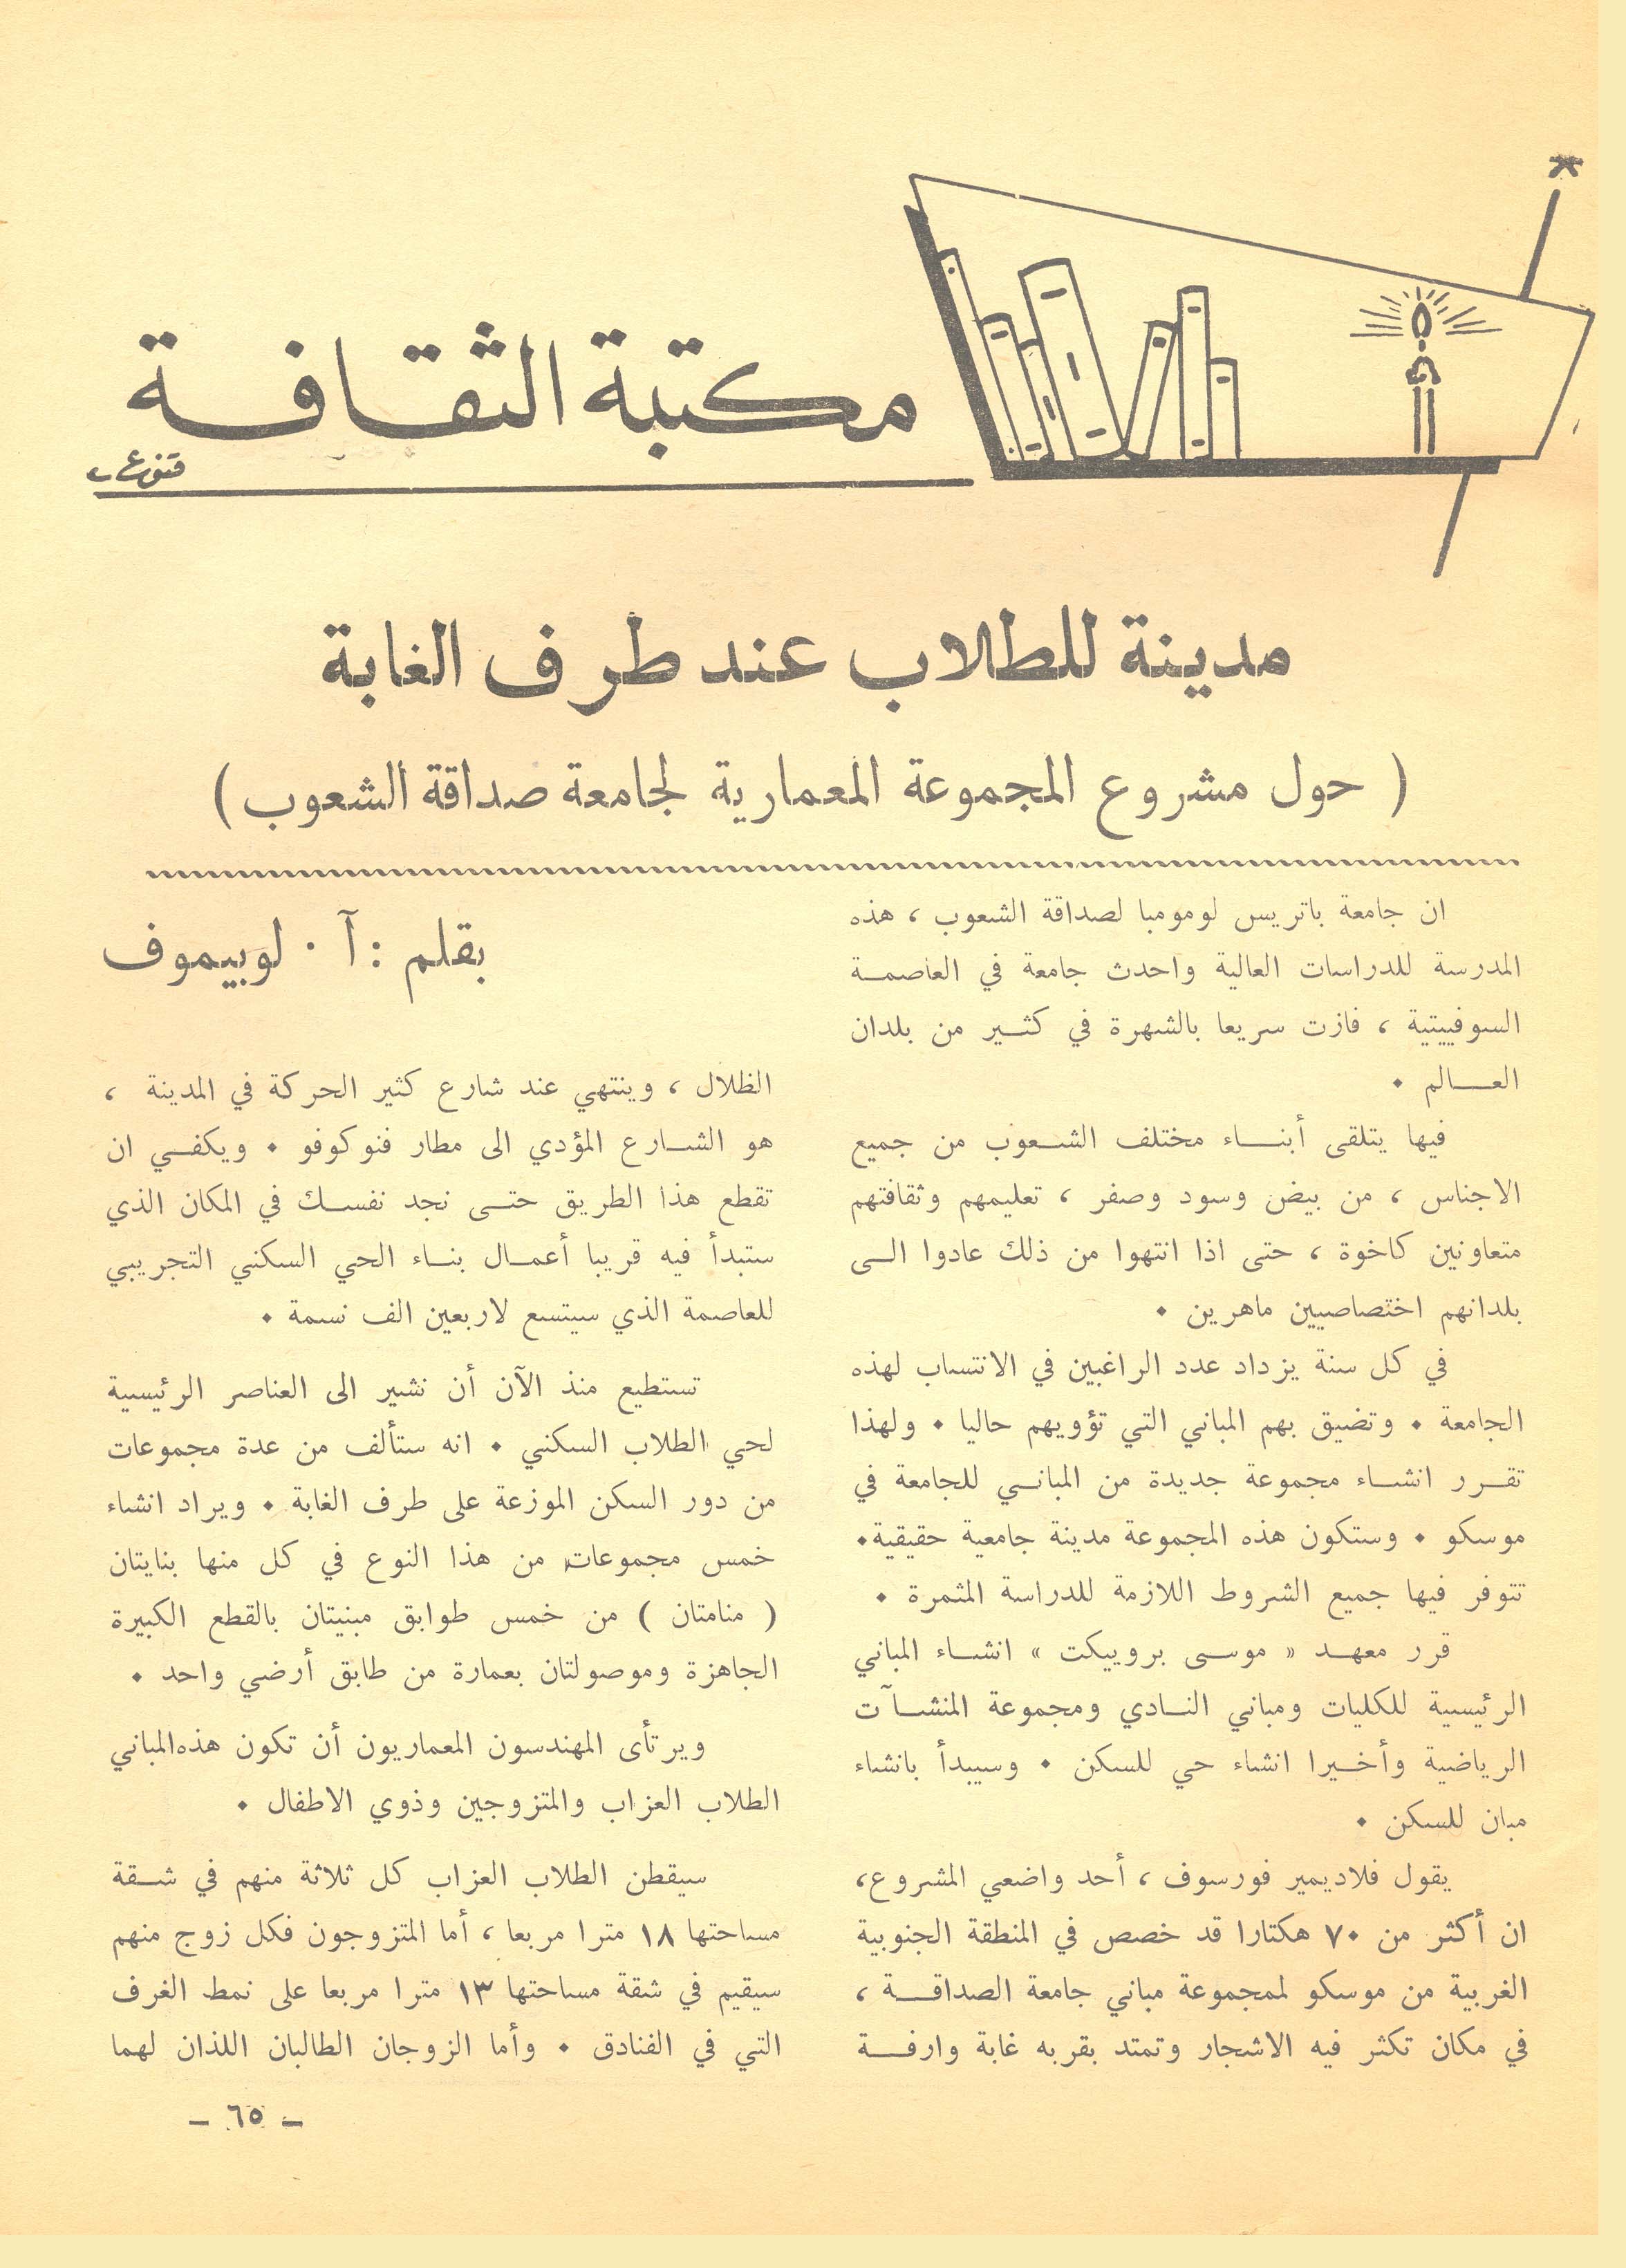 مكتبة الثقافة
مدينة للطلاب عند طرف الغابة
( حول مشروع المجموعة المعمارية لجامعة صداقة الشعوب )
ان جامعة باتريس لومومبا لصداقة الشعوب ، هذه
المدرسة للدراسات العالية واحدث جامعة في العاصمـة
السوفييتية ، فازت سريعا بالشهرة في كثـير من بلدان
العـــالم •
فيها يتلقى أبنـــاء مختلف الشــعوب من جميع
الاجناس ، من بيض وسود وصفر ، تعليمهم وثقافتهم
متعاونين كاخوة ، حتى اذا انتهوا من ذلك عادوا الــى
بلدانهم اختصاصيين ماهرين •
في كل سنة يزداد عدد الراغبين في الانتساب لهذه
الجامعة • وتضيق بهم المباني التي تؤويهم حاليا • ولهذا
تقــرر انشــاء مجموعة جديدة من المبانــي للجامعة في
موسكو • وستكون هذه المجموعة مدينة جامعية حقيقية•
تتوفر فيها جميع الشروط اللازمة للدراسة المثمرة •
قرر معهــد « موســى بروييكت » انشــاء المباني
الرئيسية للكليات ومباني النــادي ومجموعة المنشــآت
الرياضية وأخــيرا انشاء حي للسكن • وسيبدأ بانشاء
مبان للسكن •
يقول فلاديمير فورسوف ، أحد واضعي المشروع،
ان أكثر من ٧٠ هكتارا قد خصص في المنطقة الجنوبية
الغربية من موسكو لمجموعة مباني جامعة الصداقـــة ،
في مكان تكثر فيه الاشجار وتمتد بقربه غابة وارفـــة
بقلم : آ ٠ لوبيموف
الظلال ، وينتهي عند شارع كثير الحركة في المدينة ،
هو الشــارع المؤدي الى مطار فنوكوفو • ويكفــي ان
تقطع هذا الطريق حتــى نجد نفســك في المكان الذي
ستبدأ فيه قريبا أعمــال بنــاء الحي السكني التجريبي
للعاصمة الذي سيتسع لاربعين الف نسمة •
تستطيع منذ الآن أن نشير الى العناصر الرئيسية
لحي الطلاب السكني • انه ستألف من عدة مجموعات
من دور السكن الموزعة على طرف الغابة • ويراد انشاء
خمس مجموعات من هذا النوع في كل منها بنايتان
( منامتان ) من خمس طوابق مبنيتان بالقطع الكبيرة
الجاهزة وموصولتان بعمارة من طابق أرضي واحد •
ويرتأى المهندسون المعماريون أن تكون هذه المباني
الطلاب العزاب والمتزوجين وذوي الاطفال •
سيقطن الطلاب العزاب كل ثلاثة منهم في شــقة
مساحتها ١٨ مترا مربعا ، أما المتزوجون فكل زوج منهم
سيقيم في شقة مساحتها ١٣ مترا مربعا على نمط الغرف
التي في الفنادق • وأما الزوجان الطالبان اللذان لهما
– ٦٥ –